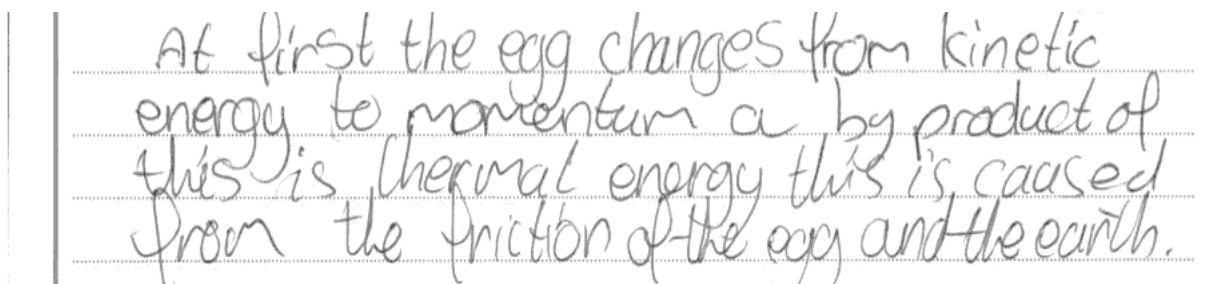 At first the egg changes from kinetic
energy to momentum a by product of
this is thermal energy this is caused
from the friction of the egg and the earth.